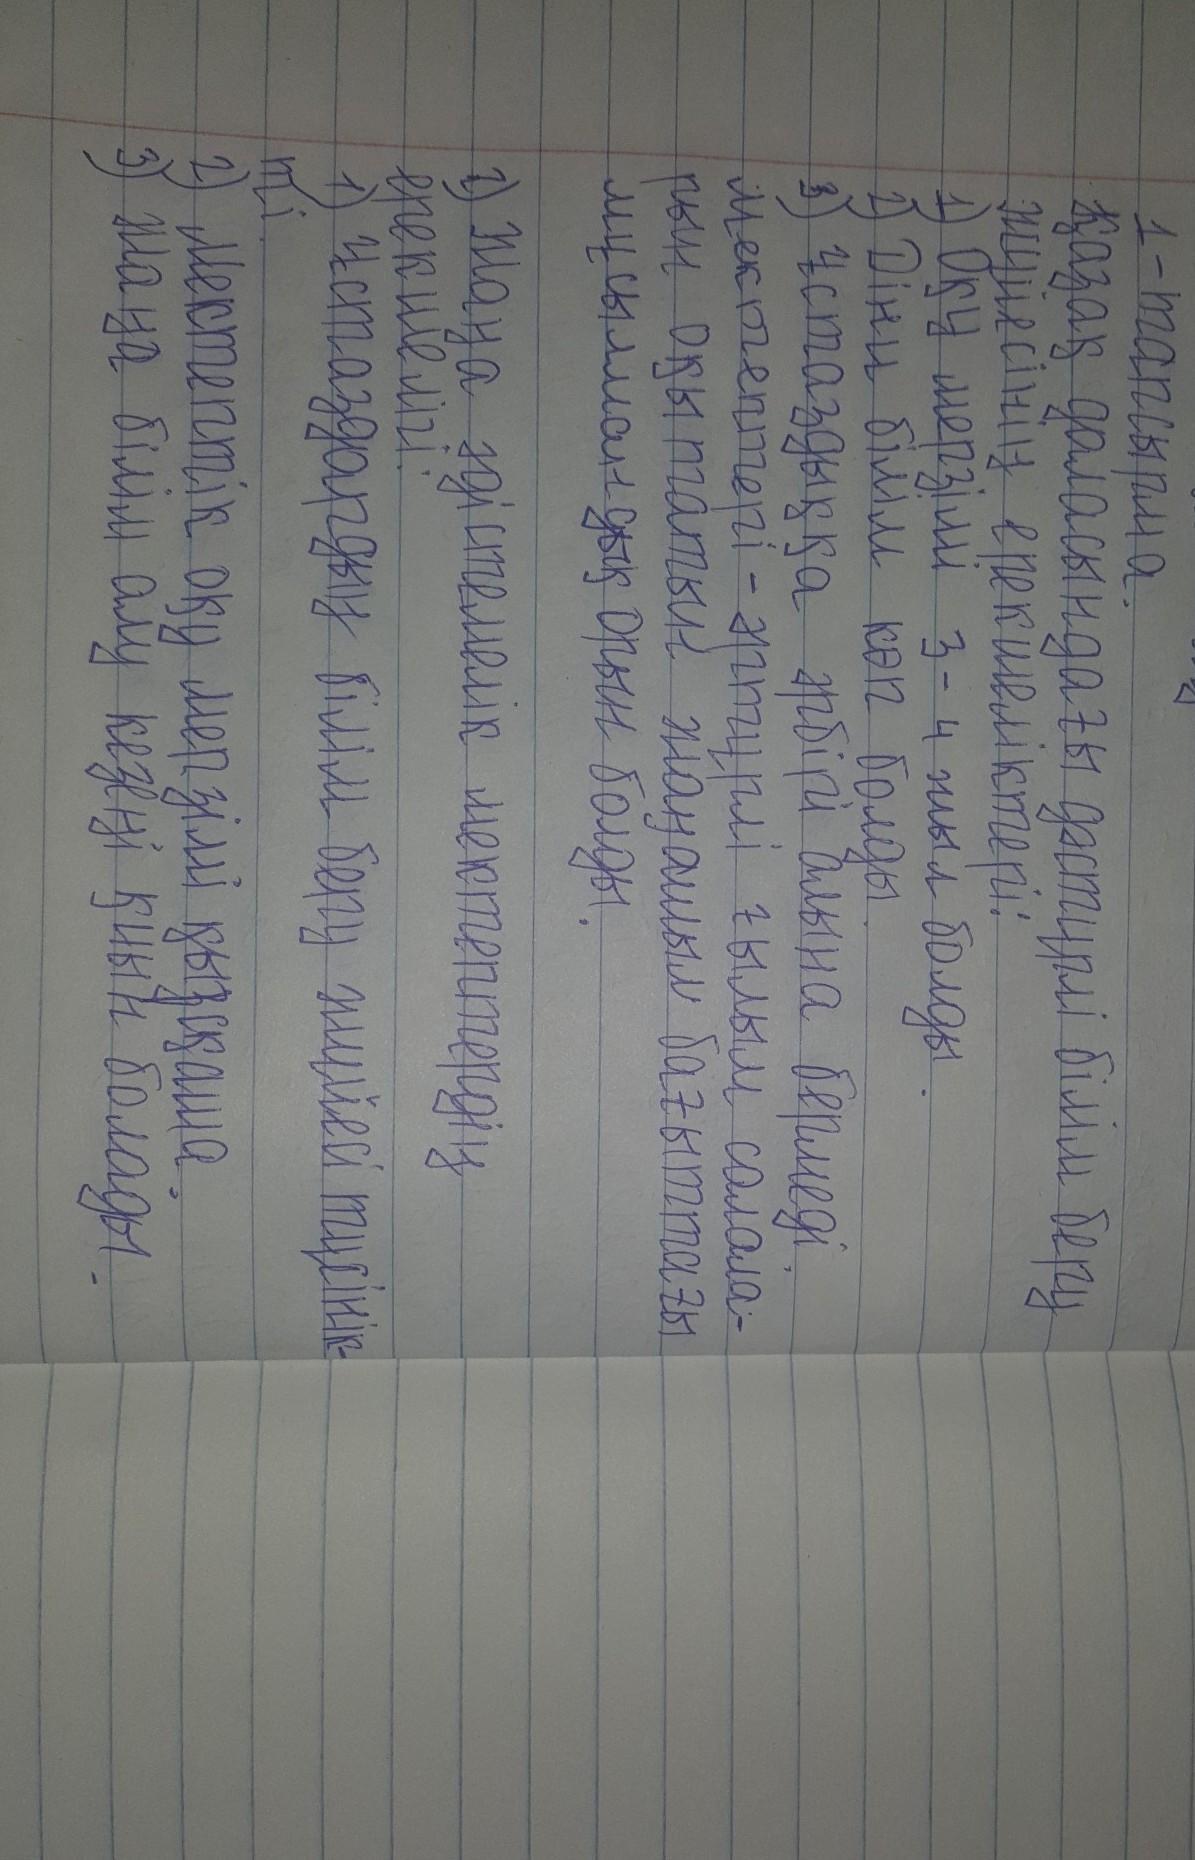 1-тапсырма.
Қазақ даласындағы дәстүрлі білім беру
жүйесінің ерекшеліктері:
1) Оқу мерзімі 3-4 жыл болды.
2) Діни білім көп болды.
3) Ұстаздыққа әрбірі алына бермеді.
мектептері - әртүрлі ғылым салала-
рын оқытатын жаңашыл бағыттағы
мұсылмандық орын болды.
2) Жаңа әдістемелік мектептердің
ерекшелігі:
1) Ұстаздардың білім беру жүйесі түсінік-
ті.
2) Мектептік оқу мерзімі қысқаша.
3) Жаңа білім алу кезеңі қиын болады.